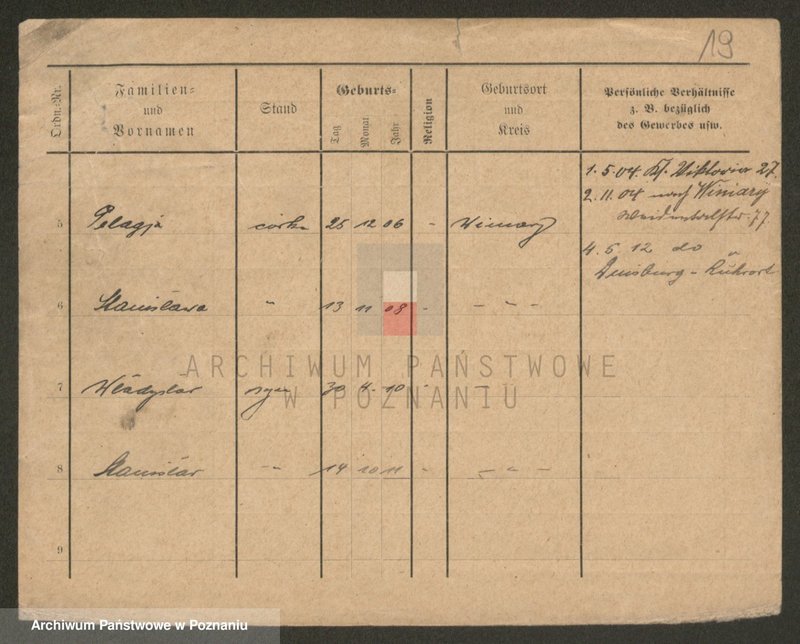 19
Ordn.-Nr.
Familien-
und
Vornamen
Stand
Geburts-
Tag
Monat
Jahr
Religion
Geburtsort
und
Kreis
Persönliche Verhältnisse
z. B. bezüglich
des Gewerbes usw.
1. 5. 04. Viktoria 27.
2. 11. 04 nach Winiary
77
5 Pelagja córka 25 12 06 - Winiary
4. 5. 12 do
Duisburg - Ruhrort
6 Stanisława " 13 11 08 - - " -
ARCHIWUM PAŃSTWOWE
W POZNANIU
7 Władysław syn 30 4. 10 - - " -
8 Stanisław - " - 14 10 11 - - " -
9
Archiwum Państwowe w Poznaniu